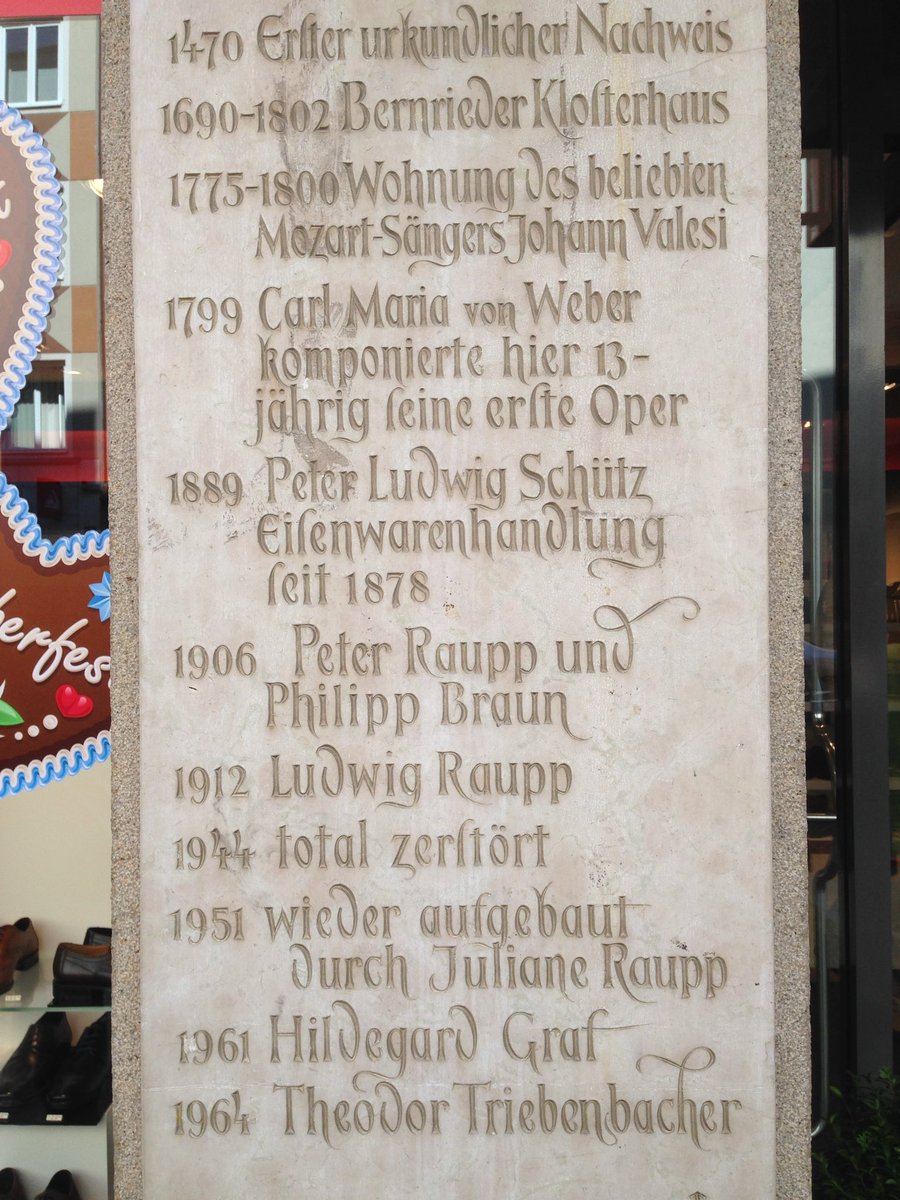 1470 Erſter urkundlicher Nachweis
1690-1802 Bernrieder Kloſterhaus
1775-1800 Wohnung des beliebten
Mozart-Sängers Johann Valesi
1799 Carl Maria von Weber
komponierte hier 13-
jährig ſeine erſte Oper
1889 Peter Ludwig Schütz
Eiſenwarenhandlung
ſeit 1878
1906 Peter Raupp und
Philipp Braun
1912 Ludwig Raupp
1944 total zerſtört
1951 wieder aufgebaut
durch Juliane Raupp
1961 Hildegard Graf
1964 Theodor Triebenbacher